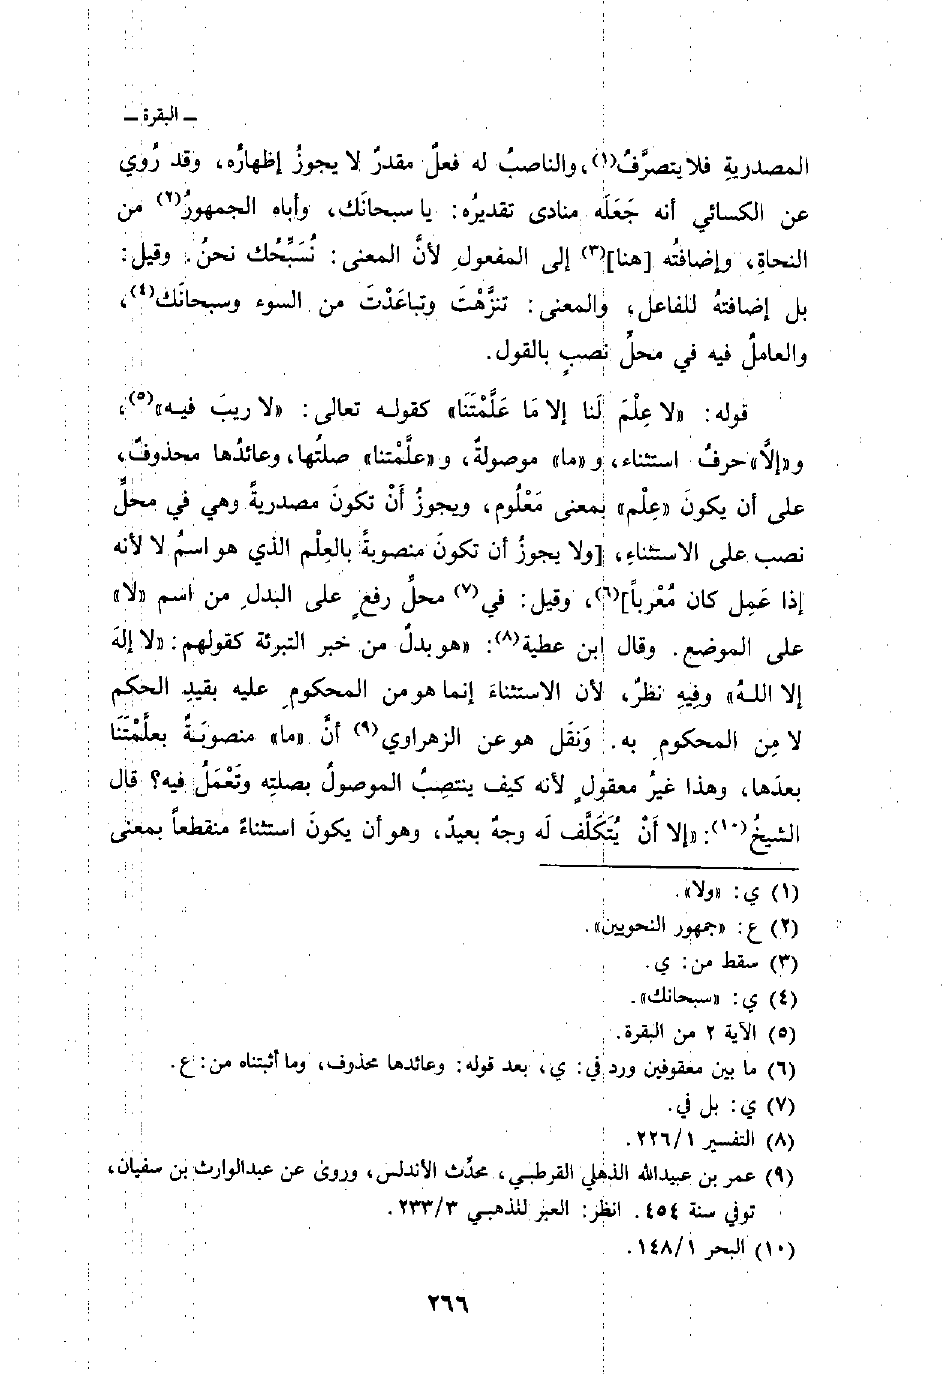 ـ البقرة ـ
المصدريةِ فلا يتصرَّفُ(١)، والناصبُ له فعلٌ مقدرٌ لا يجوزُ إظهارُه، وقد رُوي
عن الكسائي أنه جَعَلَه منادى تقديرُه: يا سبحانَك، وأباه الجمهورُ(٢) من
النحاةِ، وإضافتُه [هنا](٣) إلى المفعولِ لأنَّ المعنى: نُسَبِّحُك نحنُ. وقيل:
بل إضافتهُ للفاعل، والمعنى: تنزَّهْتَ وتباعَدْتَ من السوء وسبحانَك(٤)،
والعاملُ فيه في محلِّ نصبٍ بالقول.
قوله: «لا عِلْمَ لَنا إلا مَا عَلَّمْتَنَا» كقوله تعالى: «لا ريبَ فيه»(٥)،
و«إلَّا» حرفُ استثناء، و«ما» موصولةٌ، و«علَّمْتنا» صلتُها، وعائدُها محذوفٌ،
على أن يكونَ «عِلْم» بمعنى مَعْلُوم، ويجوزُ أَنْ تكونَ مصدريةً وهي في محلِّ
نصب على الاستثناءِ، [ولا يجوزُ أن تكونَ منصوبةً بالعِلْم الذي هو اسمُ لا لأنه
إذا عَمِل كان مُعْرباً](٦)، وقيل: في(٧) محلِّ رفعٍ على البدلِ من اسم «لا»
على الموضع. وقال ابن عطية(٨): «هو بدلٌ من خبر التبرئة كقولهم: «لا إلهَ
إلا اللهُ» وفيهِ نظرٌ، لأن الاستثناءَ إنما هو من المحكومِ عليه بقيدِ الحكم
لا مِن المحكومِ به. وَنقَل هو عن الزهراوي(٩) أنَّ «ما» منصوبَةٌ بعلَّمْتَنَا
بعدَها، وهذا غيرُ معقولٍ لأنه كيف ينتصِبُ الموصولُ بصلتِه وتَعْمَلُ فيه؟ قال
الشيخُ(١٠): «إلا أَنْ يُتَكَلَّف لَه وجهٌ بعيدٌ، وهو أن يكونَ استثناءً منقطعاً بمعنى
(١) ي: «ولا».
(٢) ع: «جمهور النحويين».
(٣) سقط من: ي.
(٤) ي: «سبحانك».
(٥) الآية ٢ من البقرة.
(٦) ما بين معقوفين ورد في: ي، بعد قوله: وعائدها محذوف، وما أثبتناه من: ع.
(٧) ي: بل في.
(٨) التفسير ١/٢٢٦.
(٩) عمر بن عبيدالله الذهلي القرطبي، محدِّث الأندلس، وروىٰ عن عبدالوارث بن سفيان،
توفي سنة ٤٥٤. انظر: العبر للذهبي ٣/٢٣٣.
(١٠) البحر ١/١٤٨.
٢٦٦